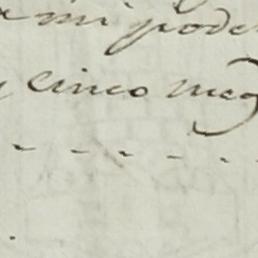 mi pode
y cinco meg